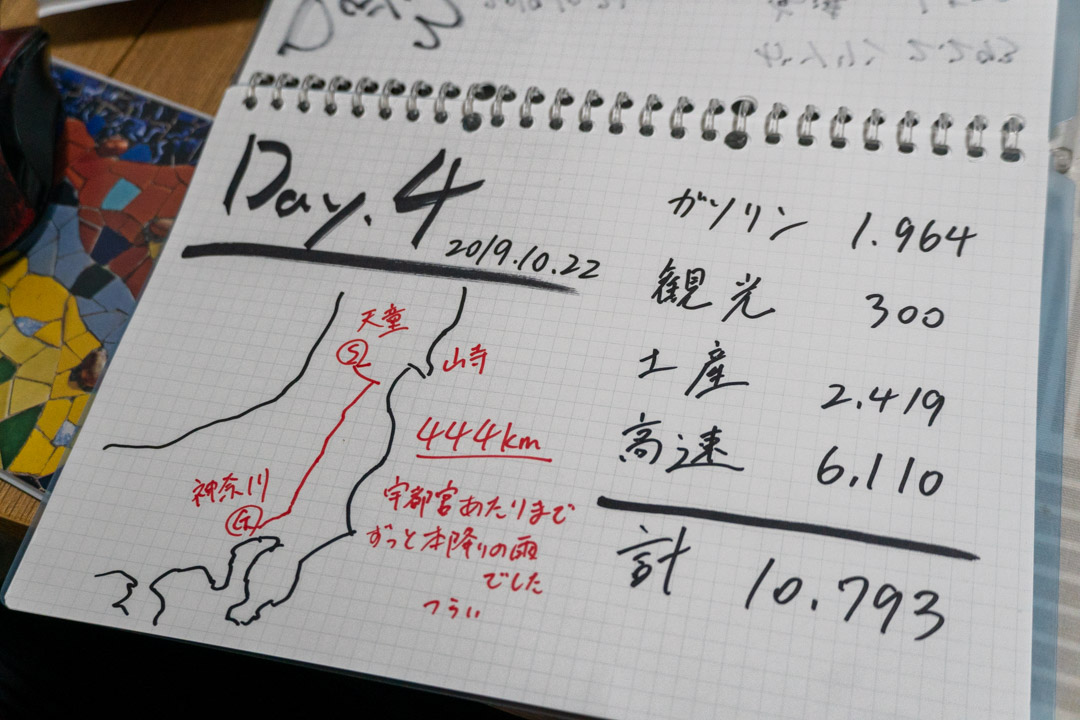 Day. 4
2019.10.22
天童
Ⓢ
山寺
444km
神奈川
Ⓖ
宇都宮あたりまで
ずっと本降りの雨
でした
つらい
ガソリン 1.964
観光 300
土産 2.419
高速 6.110
計 10.793